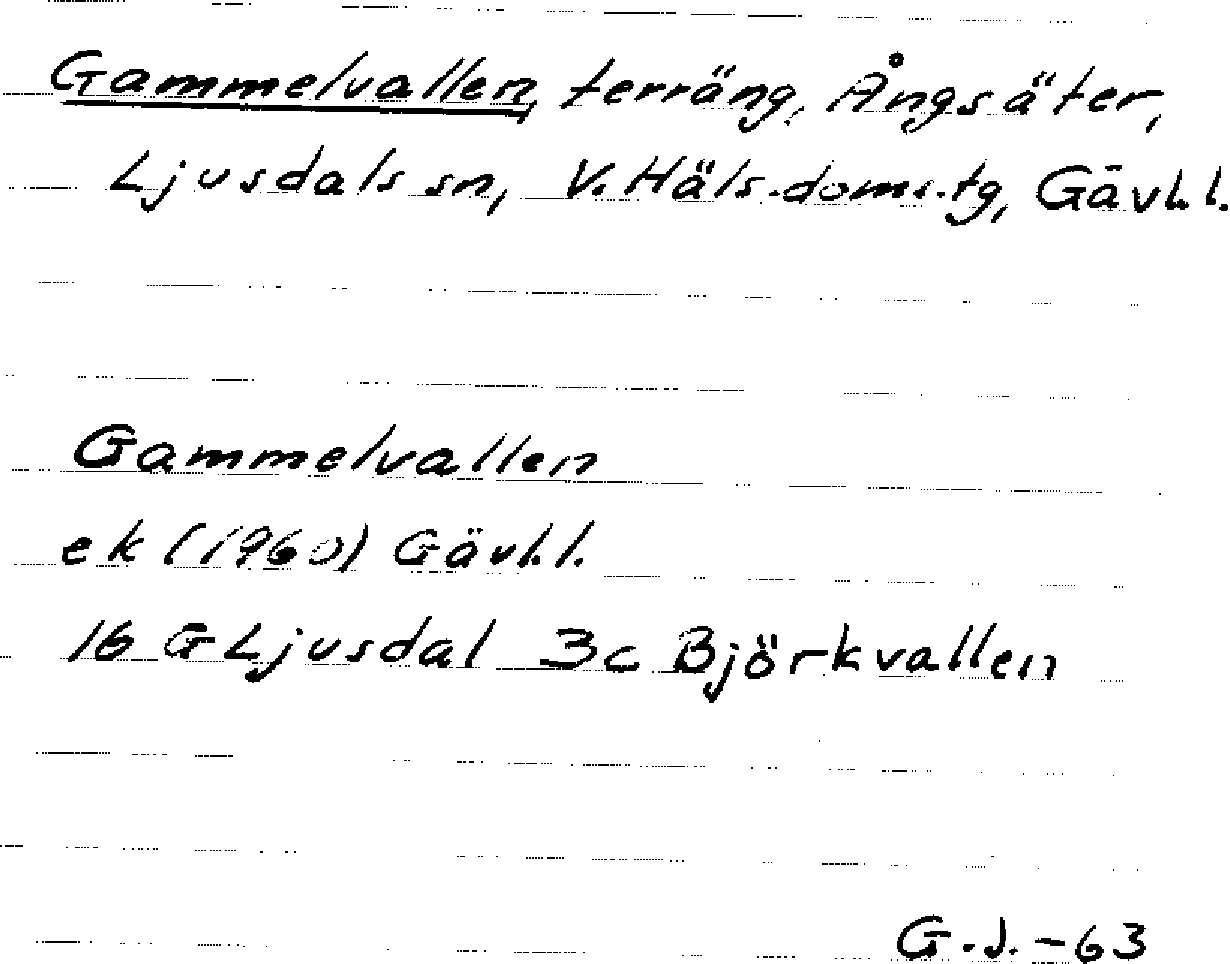 Gammelvallen, terräng, Ångsäter,
Ljusdals sn, V. Häls. doms. tg, Gävl. l.
Gammelvallen
ek (1960) Gävl. l.
16 G Ljusdal 3c Björkvallen
G.J. -63